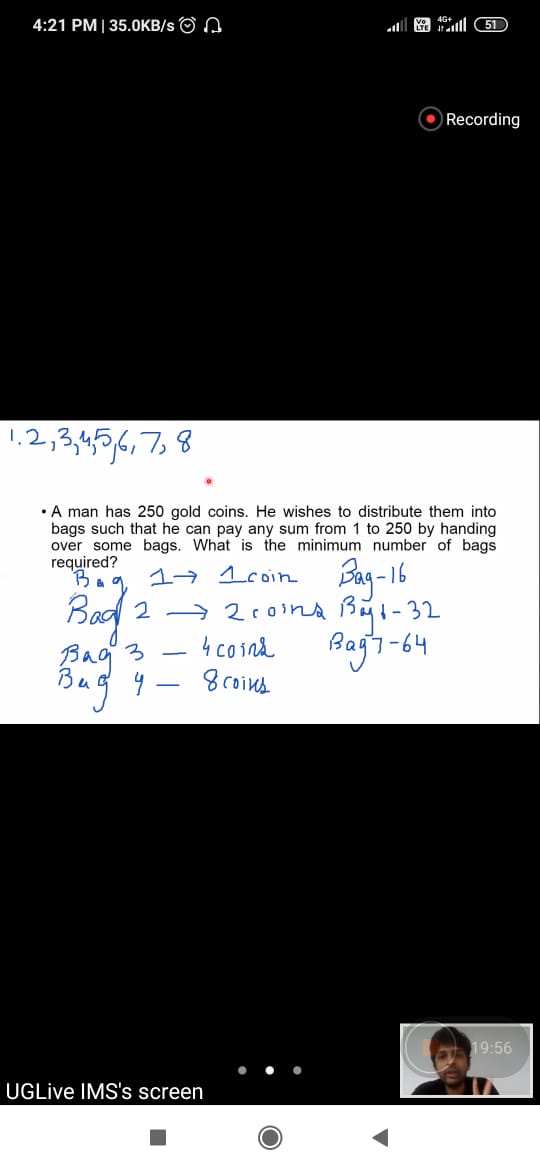 4:21 PM | 35.0KB/s
Vo LTE 4G+ 51
Recording
1.2,3,4,5,6,7,8
• A man has 250 gold coins. He wishes to distribute them into
bags such that he can pay any sum from 1 to 250 by handing
over some bags. What is the minimum number of bags
required?
Bag 1→ 1coin Bag-16
Bag 2 → 2 coins Bag -32
Bag 3 — 4 coins Bag7-64
Bag 4 — 8 coins
19:56
UGLive IMS's screen